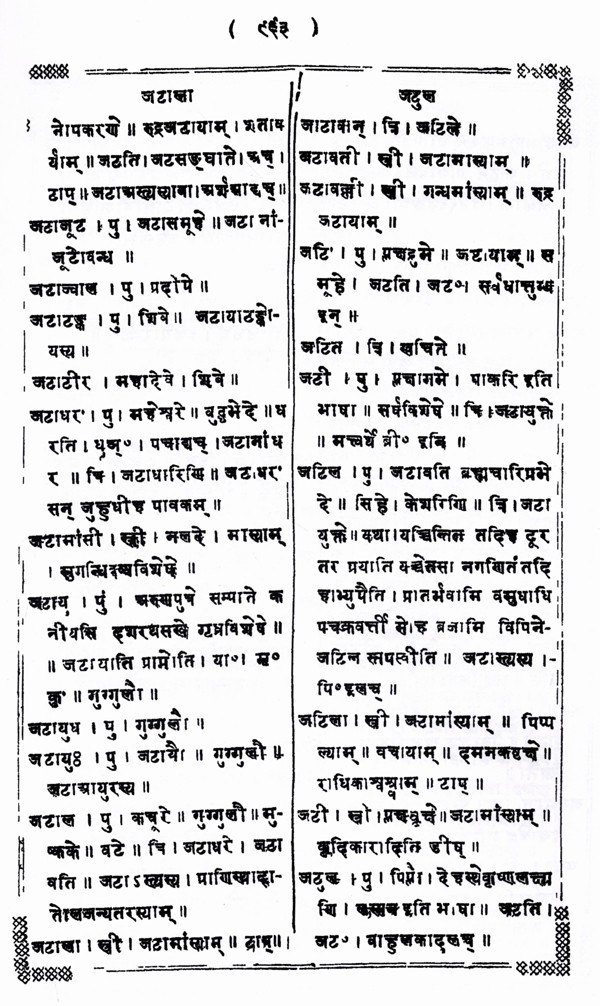 ( ९६३ )
जटाला
नोपकरणे ॥ रुद्रजटायाम् । शताव
र्याम् ॥ जटति । जटसङ्घाते । अच् ।
टाप् ॥ जटाअस्त्यस्यावा । अर्शआद्यच् ॥
जटाजूट । पु । जटासमूहे ॥ जटानां-
जूटोबन्ध ॥
जटाज्वाल । पु । प्रदीपे ॥
जटाटङ्क । पु । शिवे ॥ जटायाटङ्को-
यस्य ॥
जटाटीर । महादेवे । शिवे ॥
जटाधर' । पु । महेश्वरे ॥ बुद्धभेदे ॥ ध
रति । धृञ्० । पचाद्यच् । जटामांध
र ॥ त्रि । जटाधारिणि ॥ जटाधर'
सन् जुहुधीह पावकम् ॥
जटामांसी । स्त्री । नलदे । मास्याम्
। सुगन्धिद्रव्यविशेषे ॥
जटायु । पुं । अरुणपुत्रे सम्पाते क
नीयसि दशरथसखे गृध्रविशेषे ॥
॥ जटायाति प्राप्नोति । या० । मृ०
कु' ॥ गुग्गुलौ ॥
जटायुध । पु । गुग्गुलौ ॥
जटायु । पु । जटायौ ॥ गुग्गुलौ ॥
जटाआयुरस्य ॥
जटाल । पु । कचूरे ॥ गुग्गुलौ ॥ मु-
ष्कके ॥ वटे ॥ त्रि । जटाधरे । जटा
वति ॥ जटाऽस्त्यस्य । प्राणिस्थादा-
तोलजन्यतरस्याम् ॥
जटाला । स्त्री । जटामांस्याम् ॥ टाप् ॥
जटुल
जटावान् । त्रि । जटिले ॥
जटावती । स्त्री । जटामास्याम् ॥
जटावल्ली । स्त्री । गन्धमांस्याम् ॥ रुद्र
जटायाम् ॥
जटि' । पु । प्लक्षद्रुमे ॥ जटायाम् ॥ स
मूहे । जटति । जट० । सर्वधातुभ्य
इन् ॥
जटित । त्रि । खचिते ॥
जटी । पु । प्लक्षागमे । पाकरि इति
भाषा ॥ सर्वविशेषे ॥ त्रि । जटायुक्ते
॥ मत्वर्थे व्री० इनि ॥
जटिल । पु । जटावति ब्रह्मचारिप्रभे
दे ॥ सिंहे । केशरिणि ॥ त्रि । जटा
युक्ते ॥ यथा । यच्चिन्तित तदिह दूर
तर प्रयाति यच्चेतसा नगणितंतदि
हाभ्युपैति । प्रातर्भवामि वसुधाधि
पचक्रवर्त्ती सोह व्रजामि विपिने-
जटिल स्तपस्वीति ॥ जटास्त्यस्य ।-
पि० इलच् ॥
जटिला । स्त्री । जटामांस्याम् ॥ पिप्प
ल्याम् ॥ वचायाम् ॥ दमनकवृक्षे ॥
राधिकाश्वश्र्वाम् ॥ टाप् ॥
जटी । स्त्री । प्लक्षवृक्षे ॥ जटामांस्याम् ॥
कृदिकारादिति ङीष् ॥
जटुल । पु । पिप्लौ । देहस्थेकृष्णलक्ष्म
णि । इति भाषा ॥ जटति ।
जट० । बाहुलकादुलच् ॥